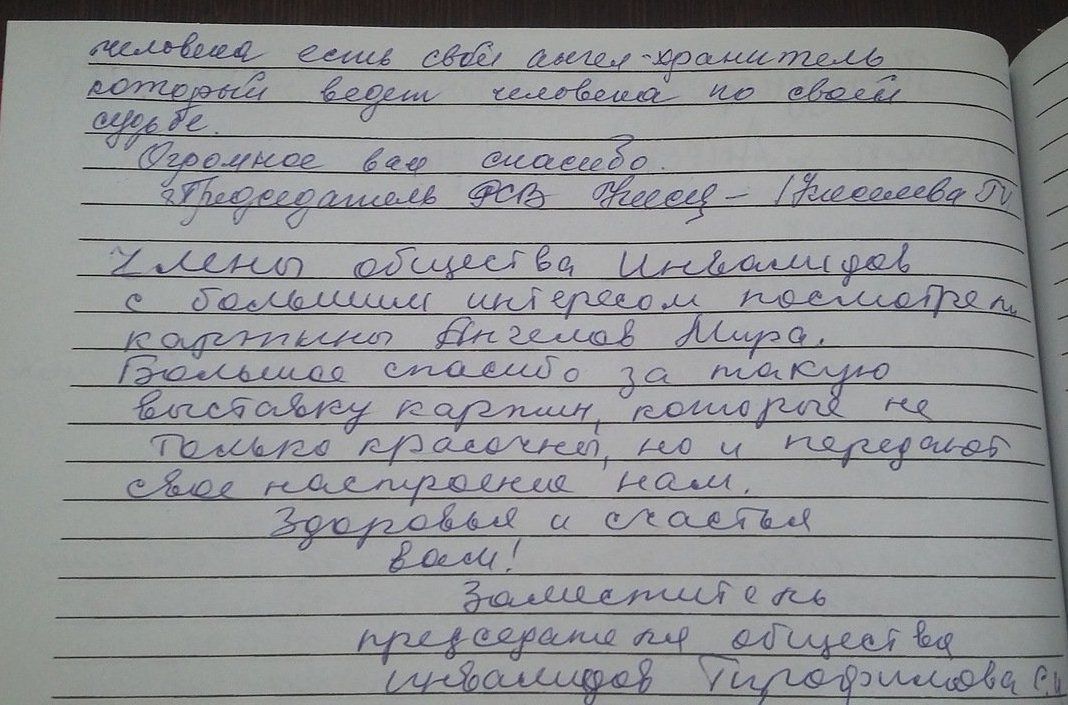 человека есть свой ангел-хранитель
который ведет человека по своей
судьбе.
Огромное вам спасибо.
Председатель ФСВ – /Киселева
Члены общества Инвалидов
с большим интересом посмотрели
картины Ангелов Мира.
Большое спасибо за такую
выставку картин, которые не
только красочны, но и передают
свое настроение нам.
Здоровья и счастья
вам!
Заместитель
председателя общества
инвалидов